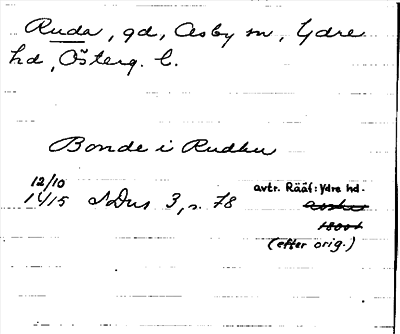 Ruda, gd, Asby sn, Ydre
hd, Österg. l.
Bonde i Rudhu
12/10
1415 SDns 3, s. 78
avtr. Rääf: Ydre hd.
(efter orig.)